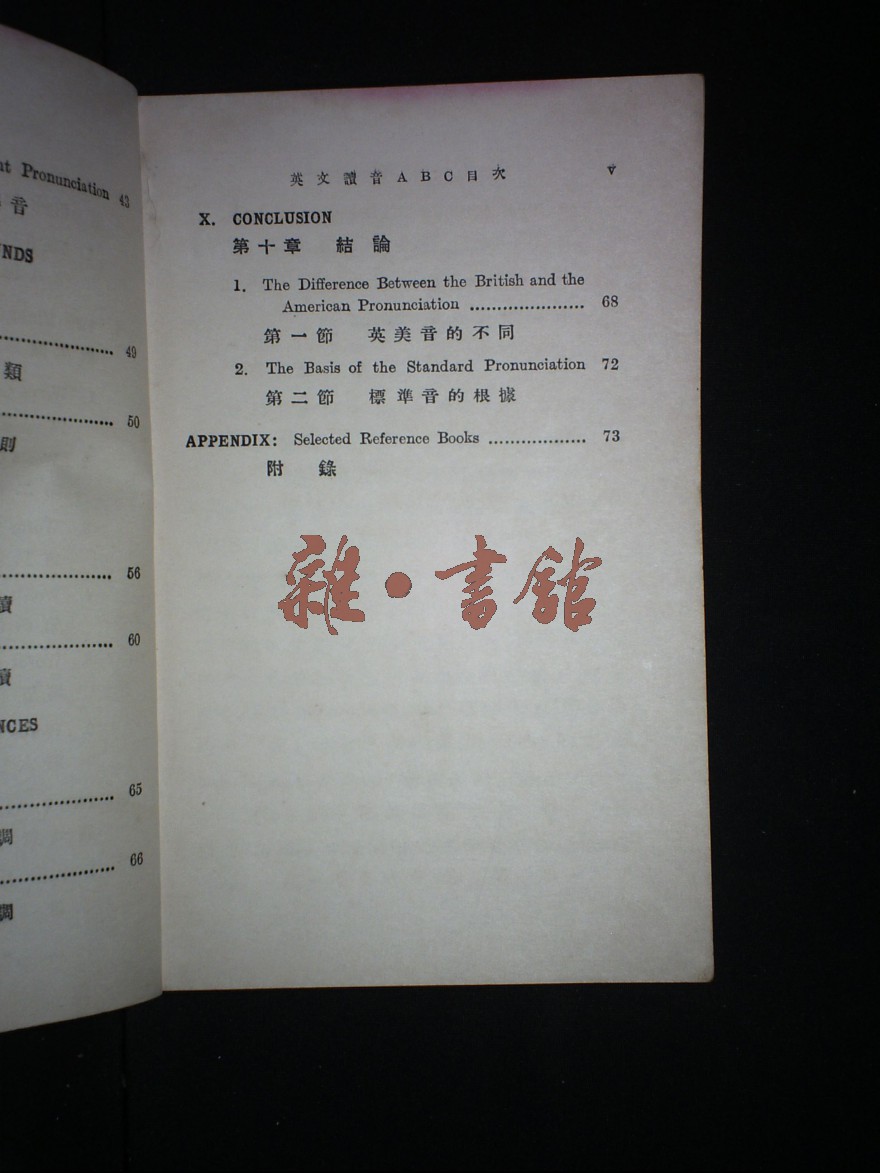 Pronunciation 43
音
49
類
50
則
56
讀
60
讀
65
調
66
調
英文讀音ABC目次 v
X. CONCLUSION
第十章 結論
1. The Difference Between the British and the
American Pronunciation ..................... 68
第一節 英美音的不同
2. The Basis of the Standard Pronunciation 72
第二節 標準音的根據
APPENDIX: Selected Reference Books .................. 73
附錄
雜·書館